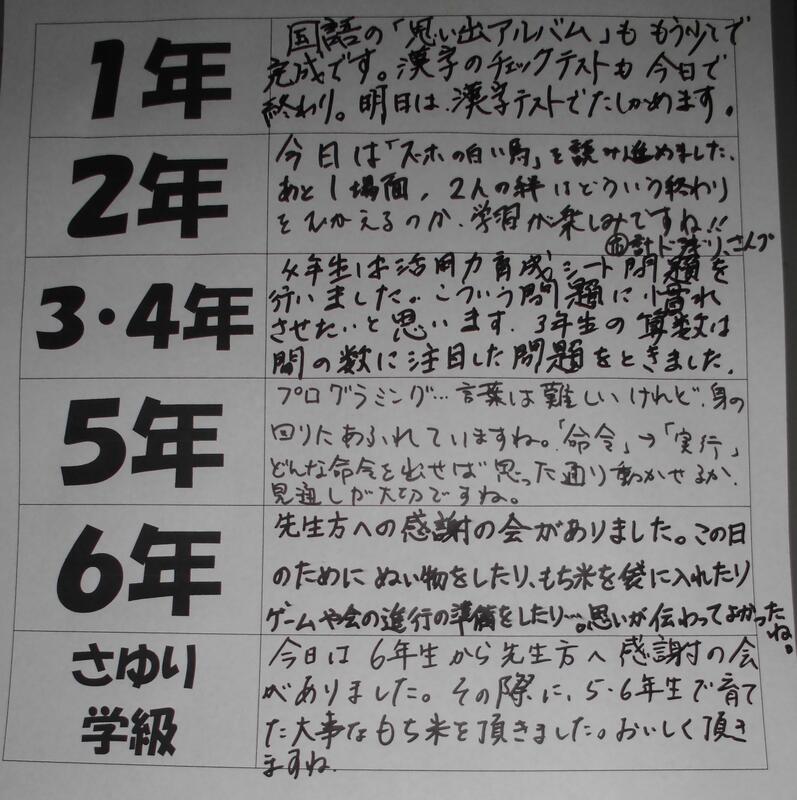 1年
国語の「思い出アルバム」も もう少しで
完成です。漢字のチェックテストも今日で
終わり。明日は、漢字テストでたしかめます。
2年
今日は「スーホの白い馬」を読み進めました。
あと1場面、2人の絆はどういう終わり
をむかえるのか、学習が楽しみですね!!
計ドまり、さんプ
3・4年
4年生は活用力育成シート問題を
行いました。こういう問題に慣れ
させたいと思います。3年生の算数は
間の数に注目した問題をときました。
5年
プログラミング…言葉は難しいけれど、身の
回りにあふれていますね。「命令」→「実行」
どんな命令を出せば思った通り動かせるか、
見通しが大切ですね。
6年
先生方への感謝の会がありました。この日
のためにぬい物をしたり、もち米を袋に入れたり
ゲームや会の進行の準備をしたり…。思いが伝わってよかったね。
さゆり
学級
今日は6年生から先生方へ感謝の会
がありました。その際に、5・6年生で育て
た大事なもち米を頂きました。おいしく頂き
ますね。